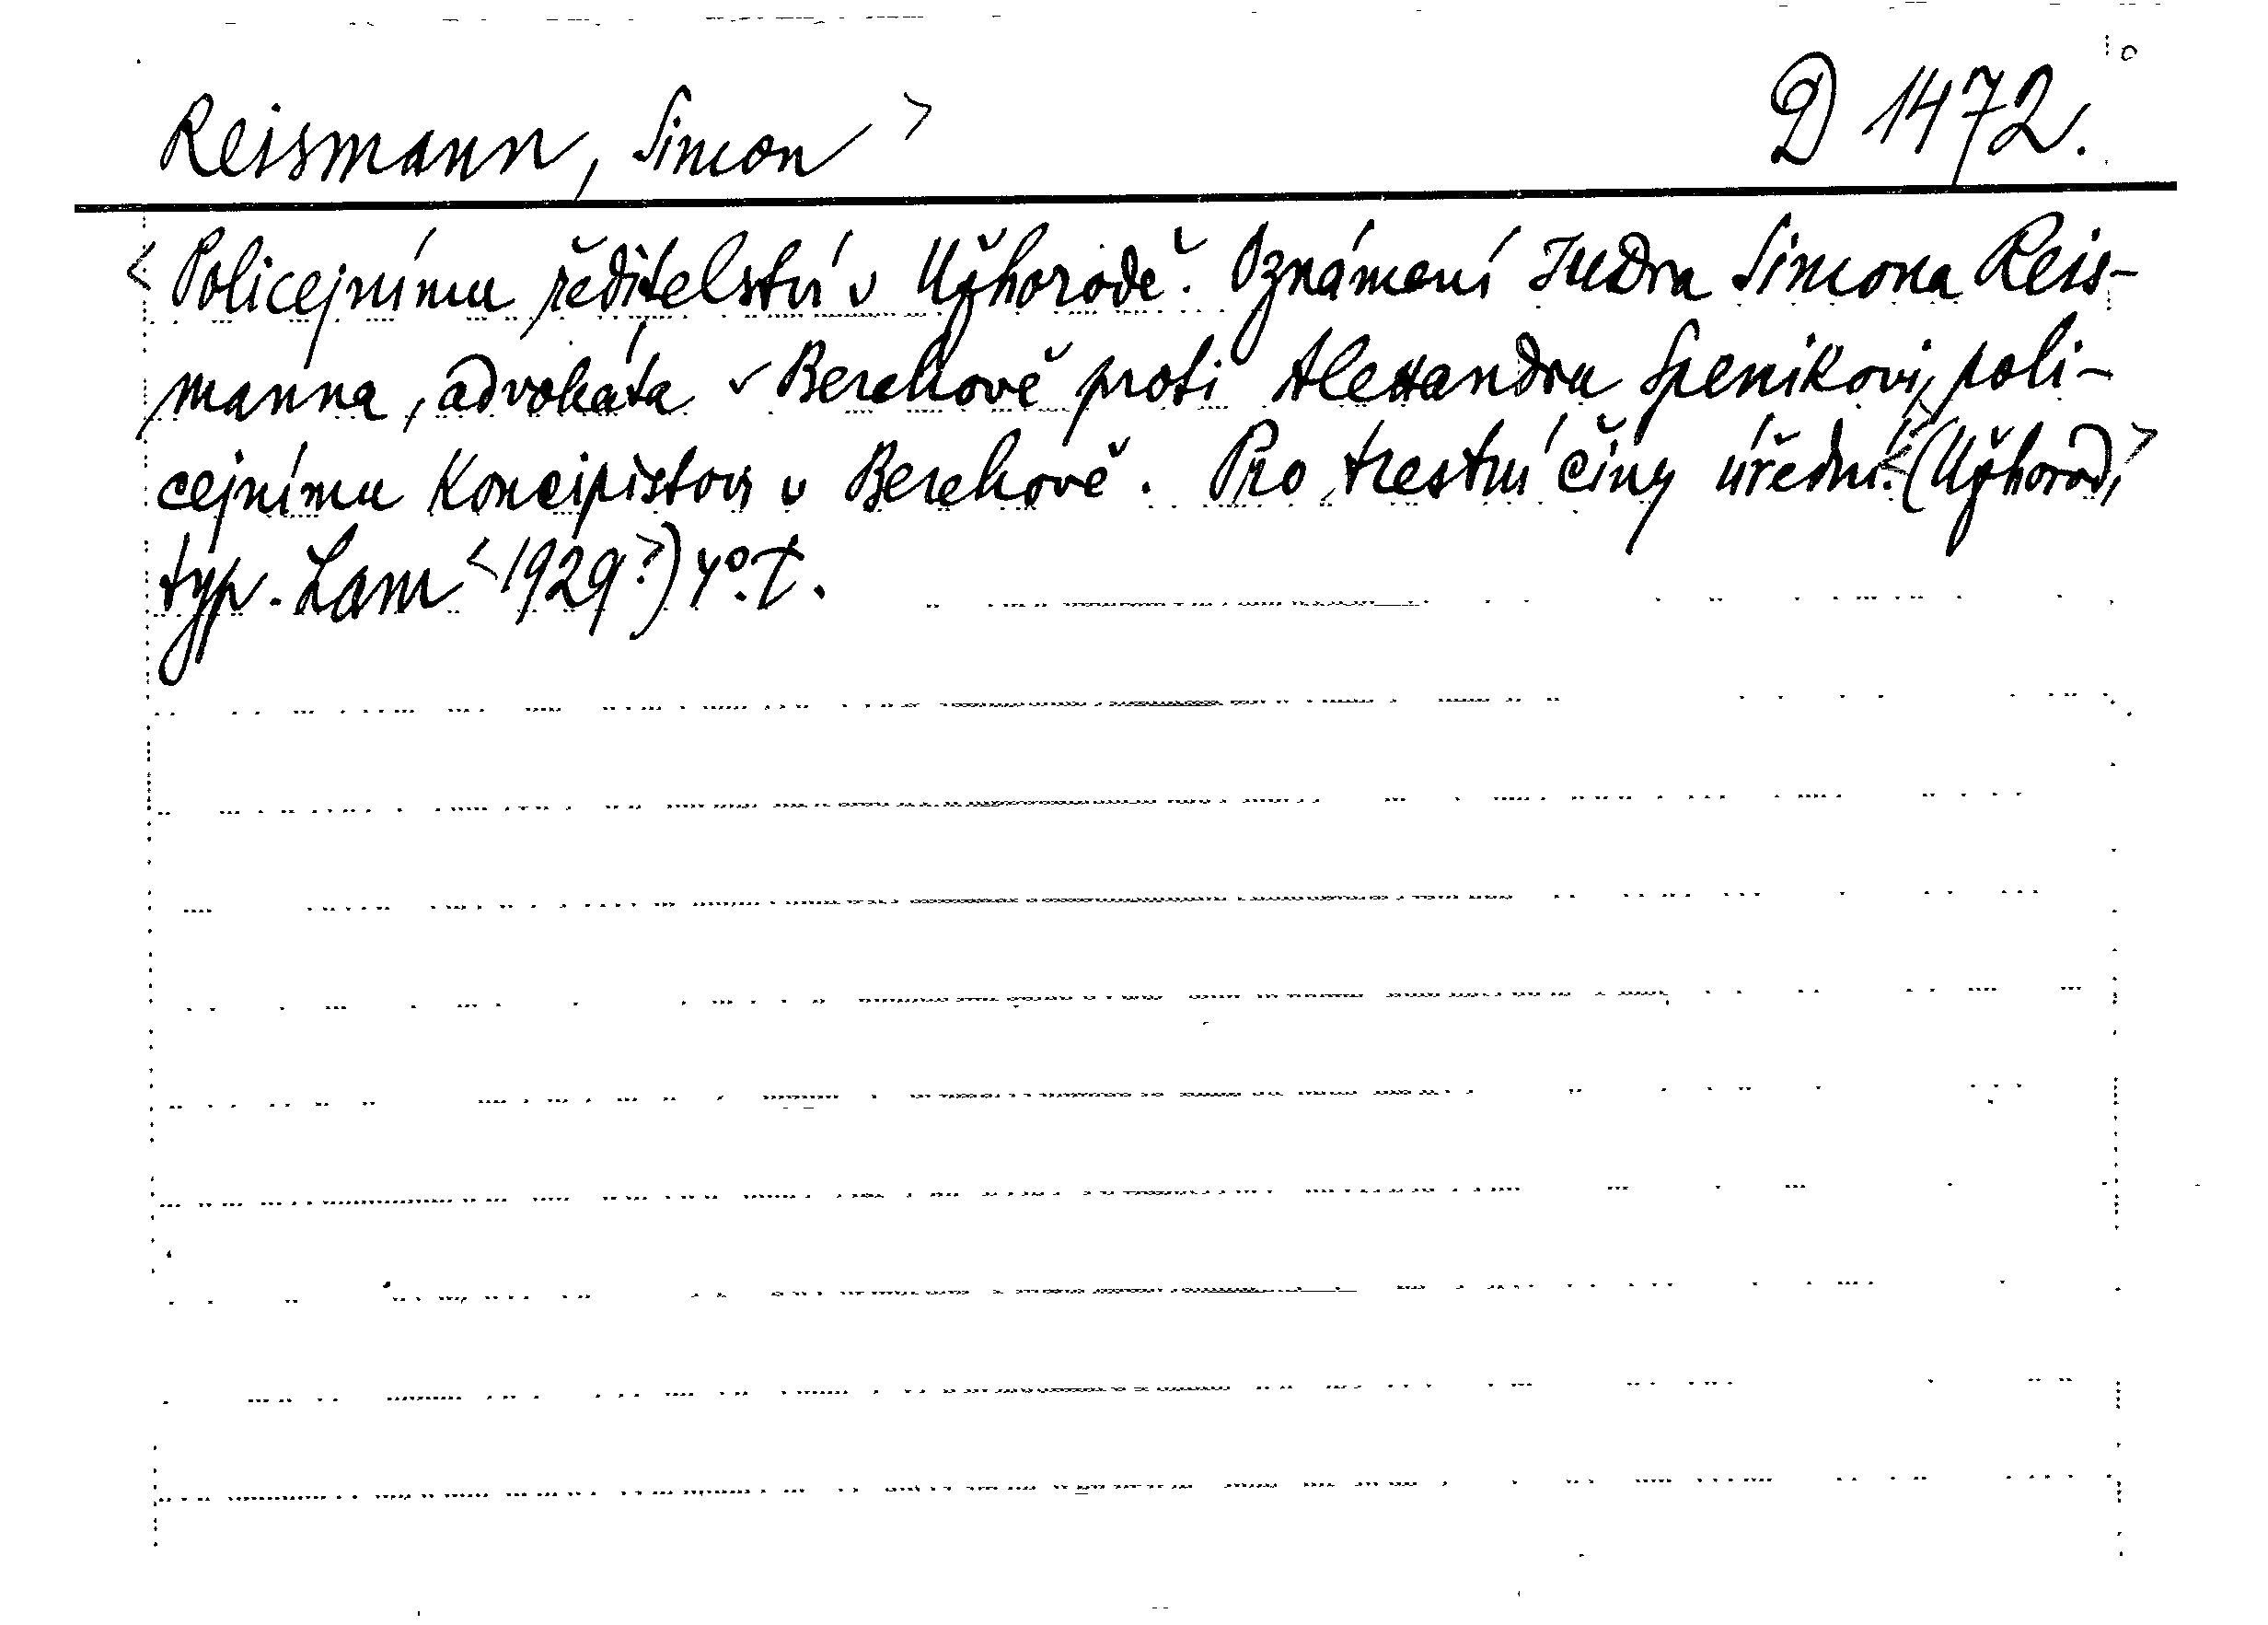 Reismann, Simon > D 1472.
< Policejnímu ředitelství v Užhorodě. Oznámení JuDra Simona Reis-
manna, advokáta v Berehově proti Alexandru Spenikovi, poli-
cejnímu koncipistovi v Berehově. Pro trestní činy úřední. < (Užhorod, >
typ. Lam < 1929?) 4°. T.